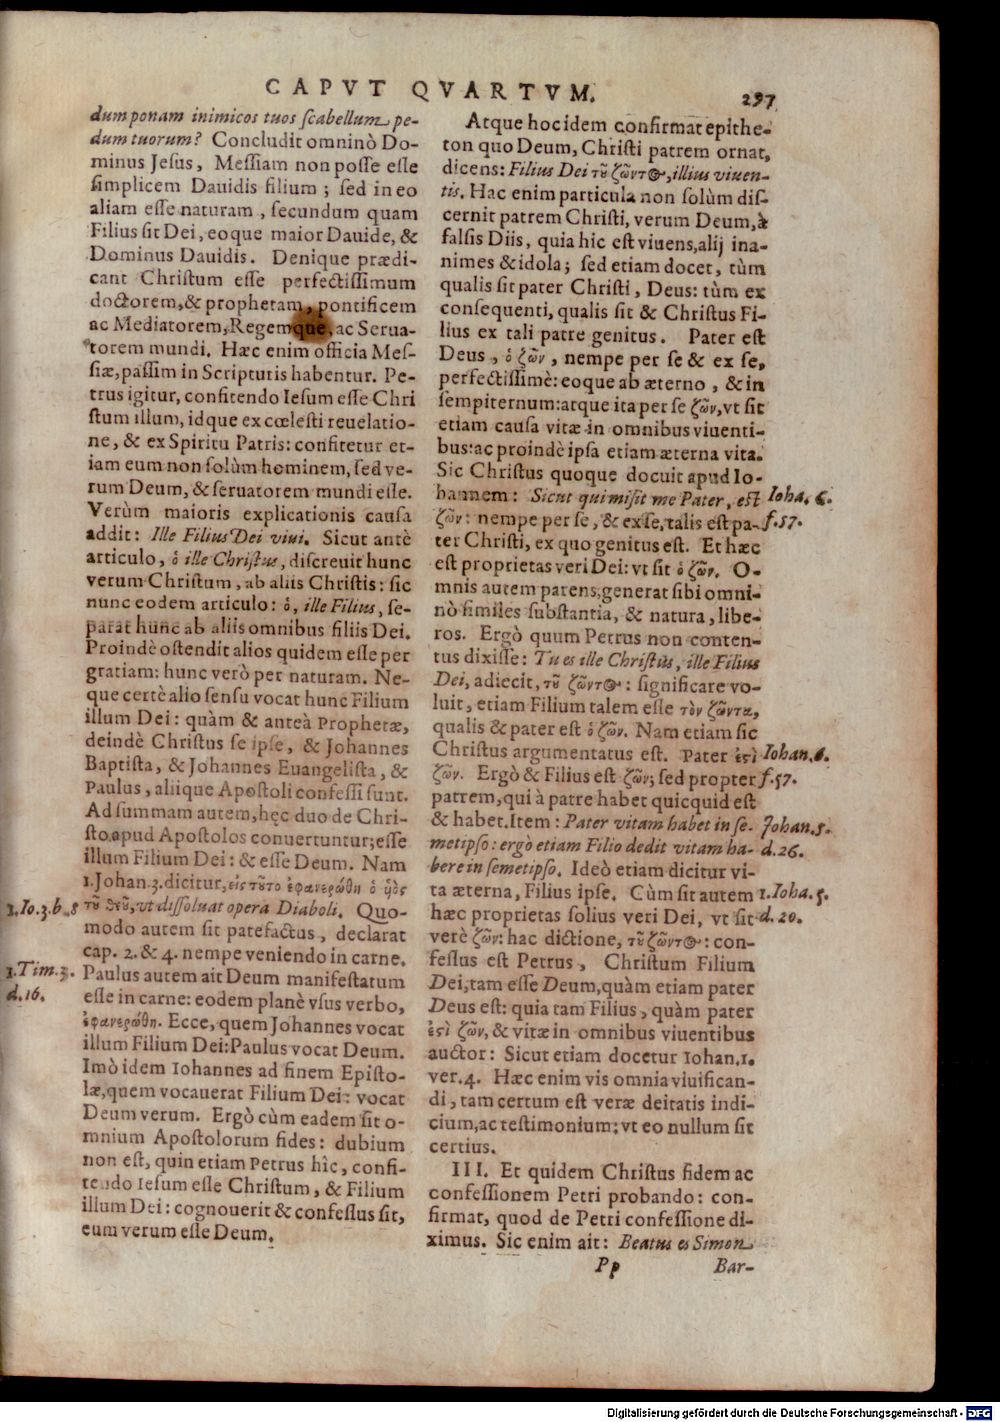 CAPVT QVARTVM.
297
dum ponam inimicos tuos scabellum pe-
dum tuorum? Concludit omninò Do-
minus Jesus, Messiam non posse esse
simplicem Dauidis filium; sed in eo
aliam esse naturam, secundum quam
Filius sit Dei, eoque maior Dauide, &
Dominus Dauidis. Denique prædi-
cant Christum esse perfectissimum
doctorem, & prophetam, pontificem
ac Mediatorem, Regemque, ac Serua-
torem mundi. Hæc enim officia Mes-
siæ, passim in Scripturis habentur. Pe-
trus igitur, confitendo Iesum esse Chri
stum illum, idque ex cœlesti reuelatio-
ne, & ex Spiritu Patris: confitetur et-
iam eum non solùm hominem, sed ve-
rum Deum, & seruatorem mundi esse.
Verùm maioris explicationis causa
addit: Ille Filius Dei viui. Sicut antè
articulo, ὁ ille Christus, discreuit hunc
verum Christum, ab aliis Christis: sic
nunc eodem articulo: ὁ, ille Filius, se-
parat hunc ab aliis omnibus filiis Dei.
Proindè ostendit alios quidem esse per
gratiam: hunc verò per naturam. Ne-
que certè alio sensu vocat hunc Filium
illum Dei: quàm & anteà Prophetæ,
deindè Christus se ipse, & Johannes
Baptista, & Johannes Euangelista, &
Paulus, aliique Apostoli confessi sunt.
Ad summam autem, hęc duo de Chri-
sto apud Apostolos conuertuntur; esse
illum Filium Dei: & esse Deum. Nam
1. Johan. 3. dicitur, εἰς τοῦτο ἐφανερώθη ὁ υἱὸς
1. Io. 3. b. 8
τοῦ θεοῦ, vt dissoluat opera Diaboli. Quo-
modo autem sit patefactus, declarat
cap. 2. & 4. nempe veniendo in carne.
1. Tim. 3.
d. 16.
Paulus autem ait Deum manifestatum
esse in carne: eodem planè vsus verbo,
ἐφανερώθη. Ecce, quem Johannes vocat
illum Filium Dei: Paulus vocat Deum.
Imò idem Iohannes ad finem Episto-
læ, quem vocauerat Filium Dei: vocat
Deum verum. Ergò cùm eadem sit o-
mnium Apostolorum fides: dubium
non est, quin etiam Petrus hîc, confi-
tendo Iesum esse Christum, & Filium
illum Dei: cognouerit & confessus sit,
eum verum esse Deum.
Atque hoc idem confirmat epithe-
ton quo Deum, Christi patrem ornat,
dicens: Filius Dei τοῦ ζῶντος, illius viuen-
tis. Hac enim particula non solùm dis-
cernit patrem Christi, verum Deum, à
falsis Diis, quia hic est viuens, alij ina-
nimes & idola; sed etiam docet, tùm
qualis sit pater Christi, Deus: tùm ex
consequenti, qualis sit & Christus Fi-
lius ex tali patre genitus. Pater est
Deus, ὁ ζῶν, nempe per se & ex se,
perfectissimè: eoque ab æterno, & in
sempiternum: atque ita per se ζῶν, vt sit
etiam causa vitæ in omnibus viuenti-
bus: ac proindè ipsa etiam æterna vita.
Sic Christus quoque docuit apud Io-
hannem: Sicut qui misit me Pater, est
Ioha. 6.
f. 57.
ζῶν: nempe per se, & ex se, talis est pa-
ter Christi, ex quo genitus est. Et hæc
est proprietas veri Dei: vt sit ὁ ζῶν. O-
mnis autem parens, generat sibi omni-
nò similes substantia, & natura, libe-
ros. Ergò quum Petrus non conten-
tus dixisse: Tu es ille Christus, ille Filius
Dei, adiecit, τοῦ ζῶντος: significare vo-
luit, etiam Filium talem esse τὸν ζῶντα,
qualis & pater est ὁ ζῶν. Nam etiam sic
Christus argumentatus est. Pater ἐστὶ
Iohan. 6.
f. 57.
ζῶν. Ergò & Filius est ζῶν; sed propter
patrem, qui à patre habet quicquid est
& habet. Item: Pater vitam habet in se-
Johan. 5.
d. 26.
metipso: ergò etiam Filio dedit vitam ha-
bere in semetipso. Ideò etiam dicitur vi-
ta æterna, Filius ipse. Cùm sit autem
1. Ioha. 5.
d. 20.
hæc proprietas solius veri Dei, vt sit
verè ζῶν: hac dictione, τοῦ ζῶντος: con-
fessus est Petrus, Christum Filium
Dei, tam esse Deum, quàm etiam pater
Deus est: quia tam Filius, quàm pater
ἐστὶ ζῶν, & vitæ in omnibus viuentibus
auctor: Sicut etiam docetur Iohan. 1.
ver. 4. Hæc enim vis omnia viuifican-
di, tam certum est veræ deitatis indi-
cium, ac testimonium; vt eo nullum sit
certius.
III. Et quidem Christus fidem ac
confessionem Petri probando: con-
firmat, quod de Petri confessione di-
ximus. Sic enim ait: Beatus es Simon
Pp
Bar-
Digitalisierung gefördert durch die Deutsche Forschungsgemeinschaft - DFG